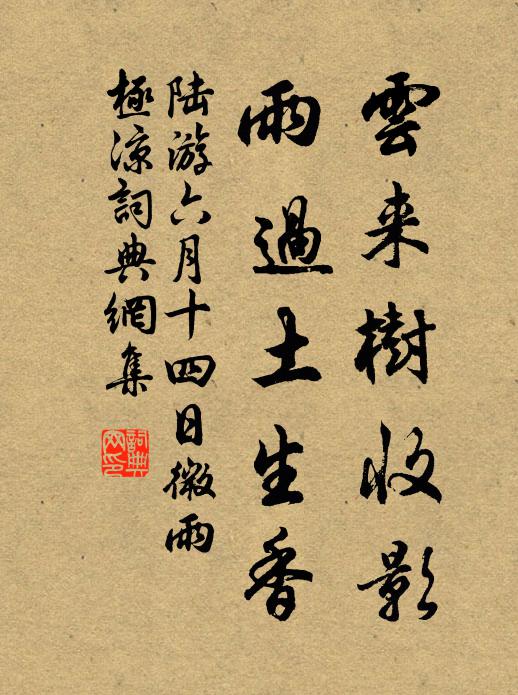 雲来樹收影
雨過土生香
陸游六月十四日微雨
極涼詞典網集
詞典網印